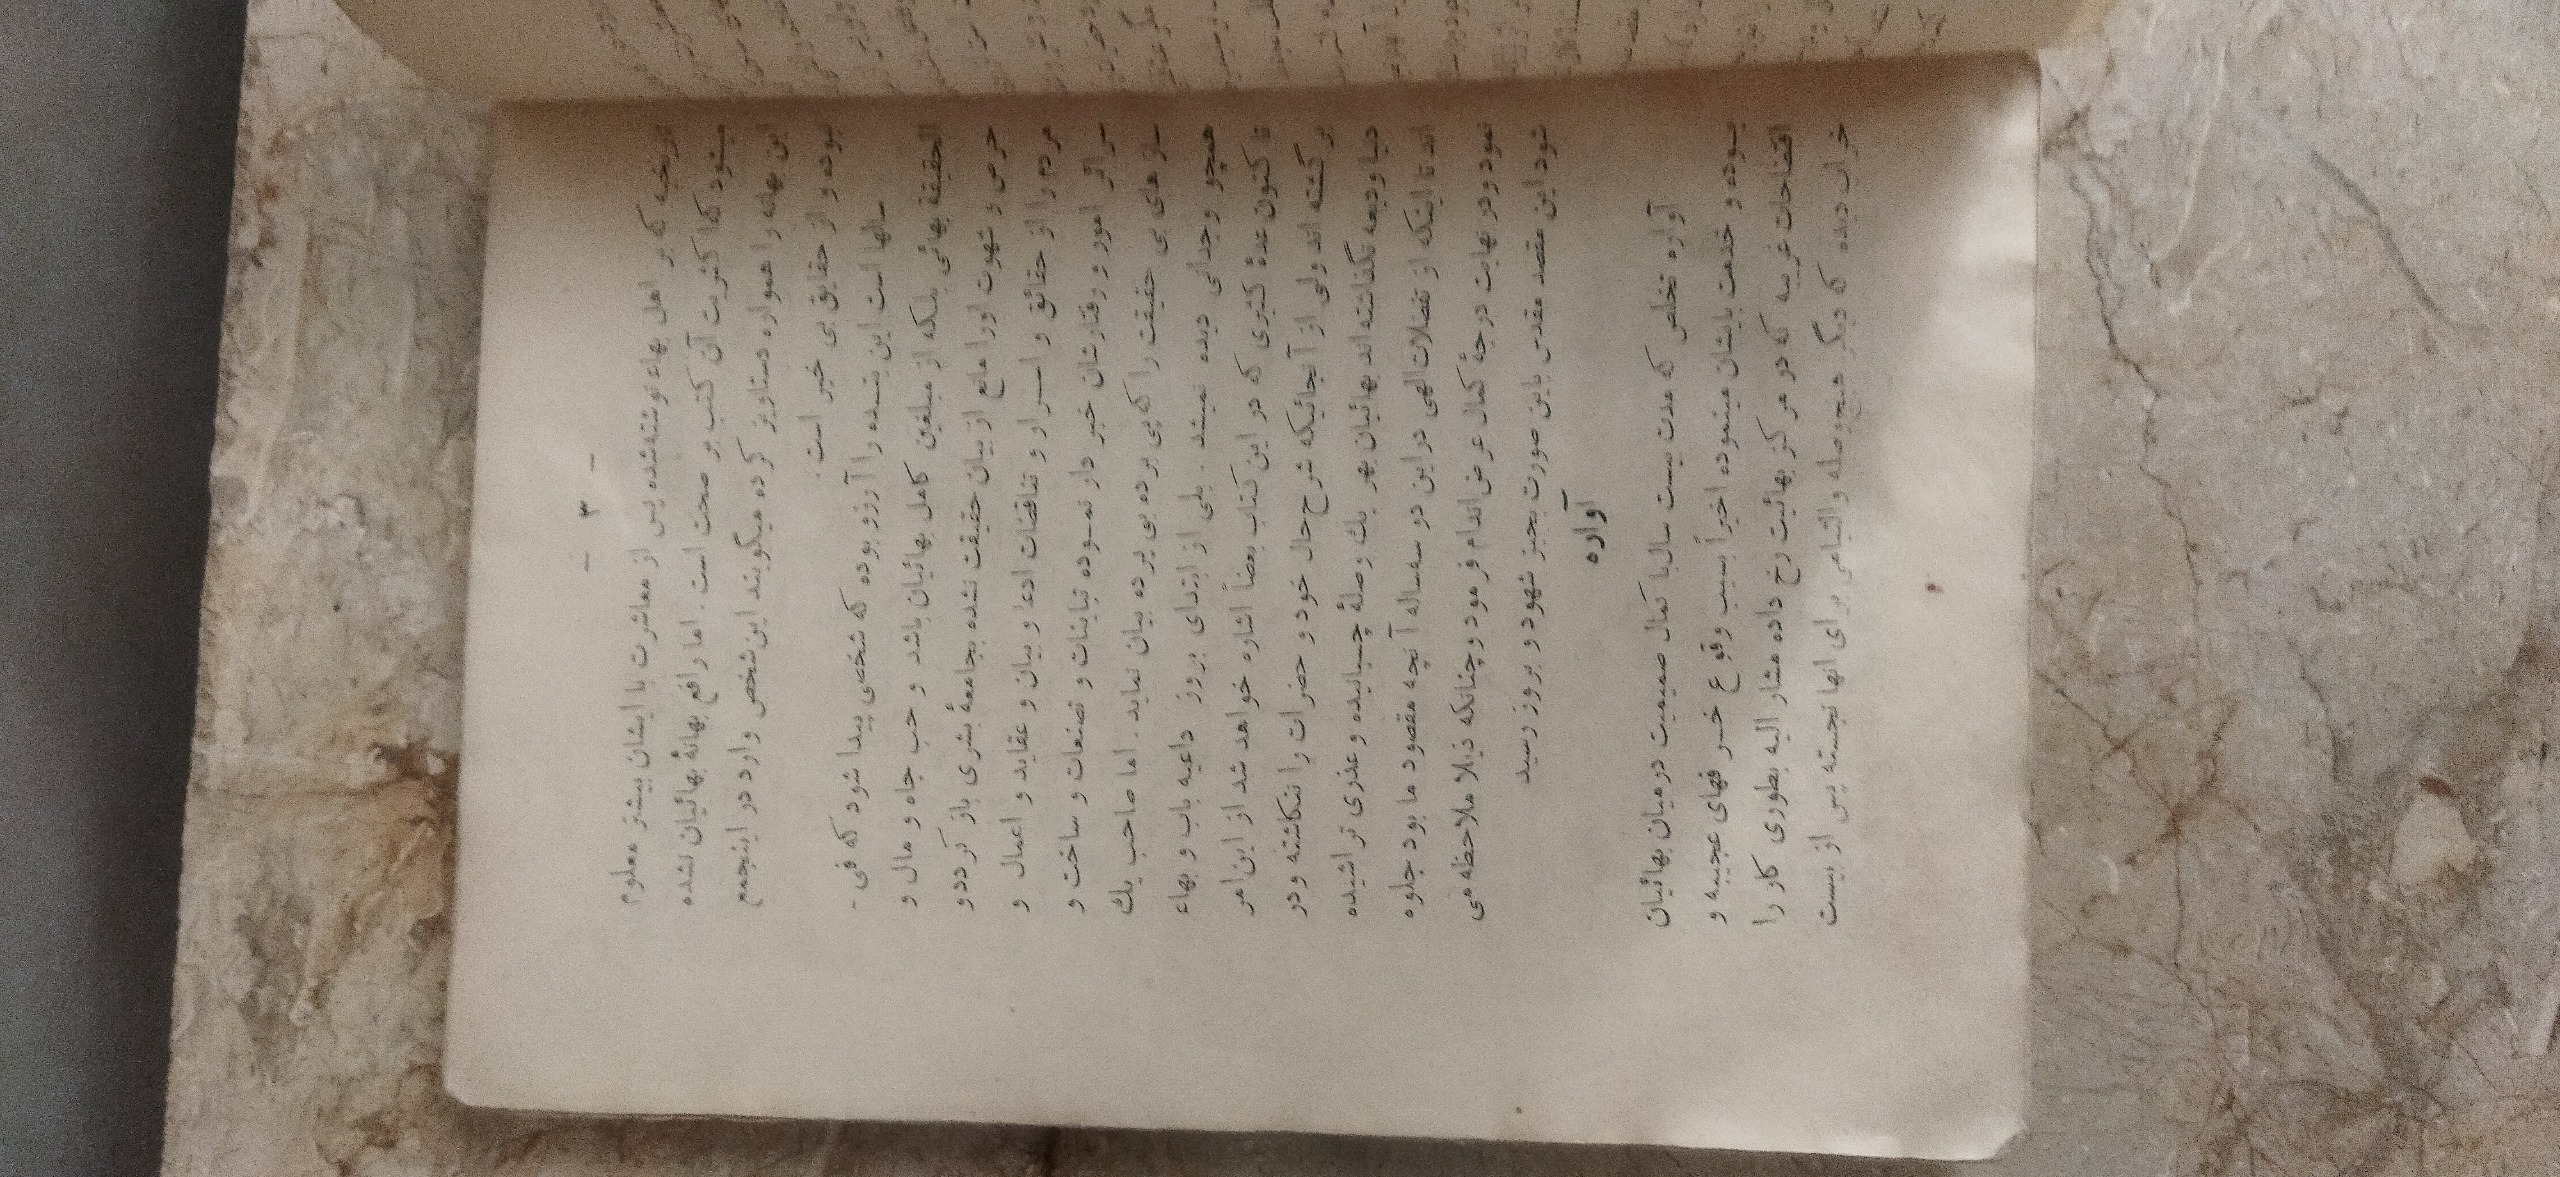 - ۳ -
تاریخیه که بر اهل بهاء نوشته شده پس از معاشرت با ایشان بیشتر معلوم
میشود که اکثریت آن کتب بر صحت است . اما رافع بهانهٔ بهائیان نشده
این بهانه را همواره دستاویز کرده میگویند این شخص وارد در اینجمع
نبوده و از حقایق بی خبر است .
سالها است این بنده را آرزو بوده که شخصی پیدا شود که فی -
الحقیقة بهائی بلکه از مبلغین کامل بهائیان باشد و حب جاه و مال و
حرص و شهوت اورا مانع از بیان حقیقت نشده بجامعهٔ بشری باز گردد و
مردم را از حقائق و اسرار و تناقضات ادعا و بیان و عقاید و اعمال و
سرائر امور و رفتارشان خبر دار نموده تباینات و تصنعات و ساخت و
سازهای بی حقیقت را که پی برده بی پرده بیان نماید . اما صاحب یك
همچو وجدانی دیده نمیشد . بلی از ابتدای بروز داعیه باب و بهاء
تا کنون عدهٔ کثیری که در این کتاب بعضاً اشاره خواهد شد از این امر
بر گشته اند ولی از آنجائیکه شرح حال خود و حضرات را ننگاشته و در
دنیا ودیعه نگذاشته اند بهائیان بهر یك وصلهٔ چسبانیده و عذری تراشیده
اند تا اینکه از تفضلات الهی در این دو سه ساله آنچه مقصود ما بود جلوه
نمود و در نهایت درجهٔ کمال عرض اندام فرمود و چنانکه ذیلا ملاحظه می
شود این مقصد مقدس باین صورت بحیز شهود و بروز رسید
آواره
آواره تخلص که مدت بیست سال با کمال صمیمیت در میان بهائیان
بوده و خدمت بایشان مینموده اخیراً بسبب وقوع خرقهای عجیبه و
افتضاحات غریبه که در مرکز بهائیت رخ داده مشار الیه بطوری کار را
خراب دیده که دیگر هیچ وصله و التیامی برای آنها نجسته پس از بیست